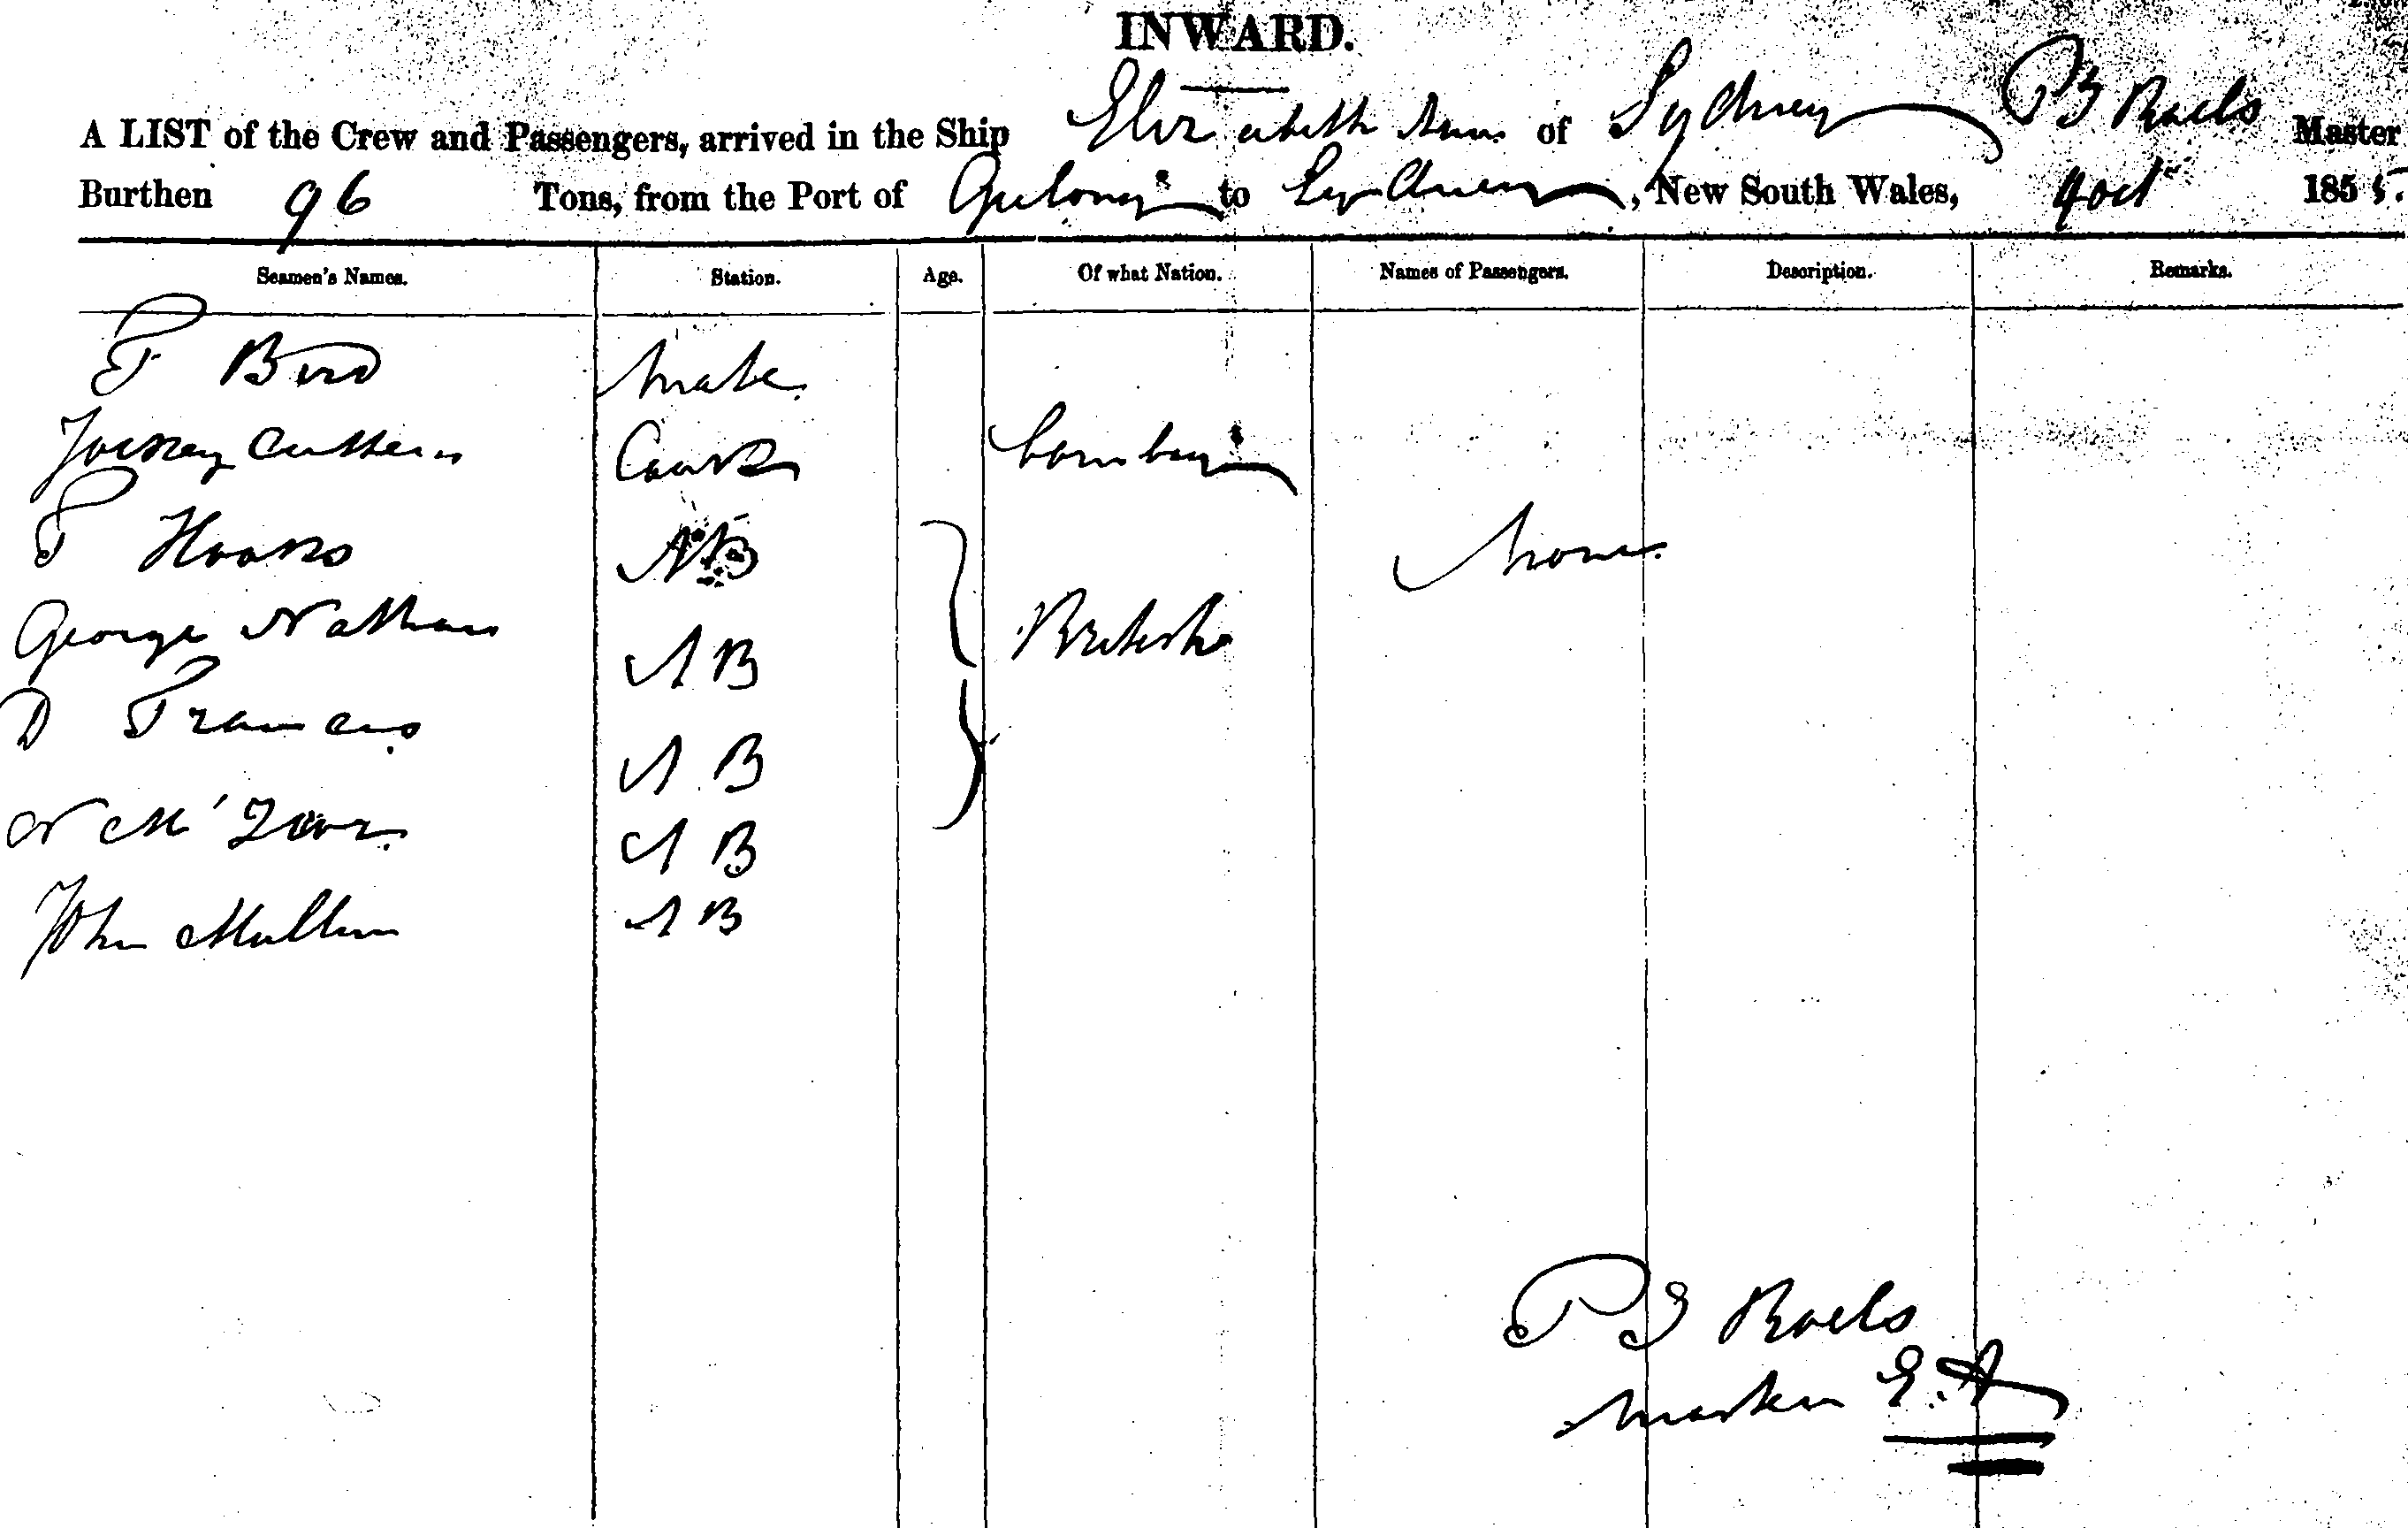 INWARD.
A LIST of the Crew and Passengers, arrived in the Ship Elizabeth Ann of Sydney P S Roels Master
Burthen 96 Tons, from the Port of Geelong to Sydney, New South Wales, 9 Oct 1855.
Seamen's Names. Station. Age. Of what Nation. Names of Passengers. Description. Remarks.
F Bird Mate
Cook Bombay
F Hooks AB None
George Nathan AB British
D Francis AB
N M' AB
John Mullin AB
P S Roels
Master E.A